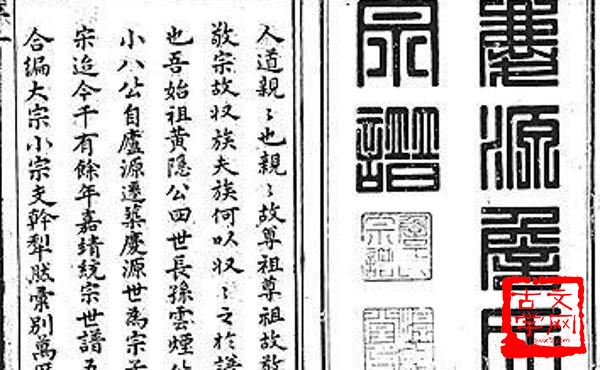 慶源詹氏
宗譜
人道親〻也親〻故尊祖尊祖故敬
敬宗故収族夫族何以収〻之於譜
也吾始祖黄隐公四世長孫雲煙公
小八公自廬源遷築慶源世為宗子
宗迄今千有餘年嘉靖統宗世譜五
合編大宗小宗支幹犁肰彚別萬
古文学网